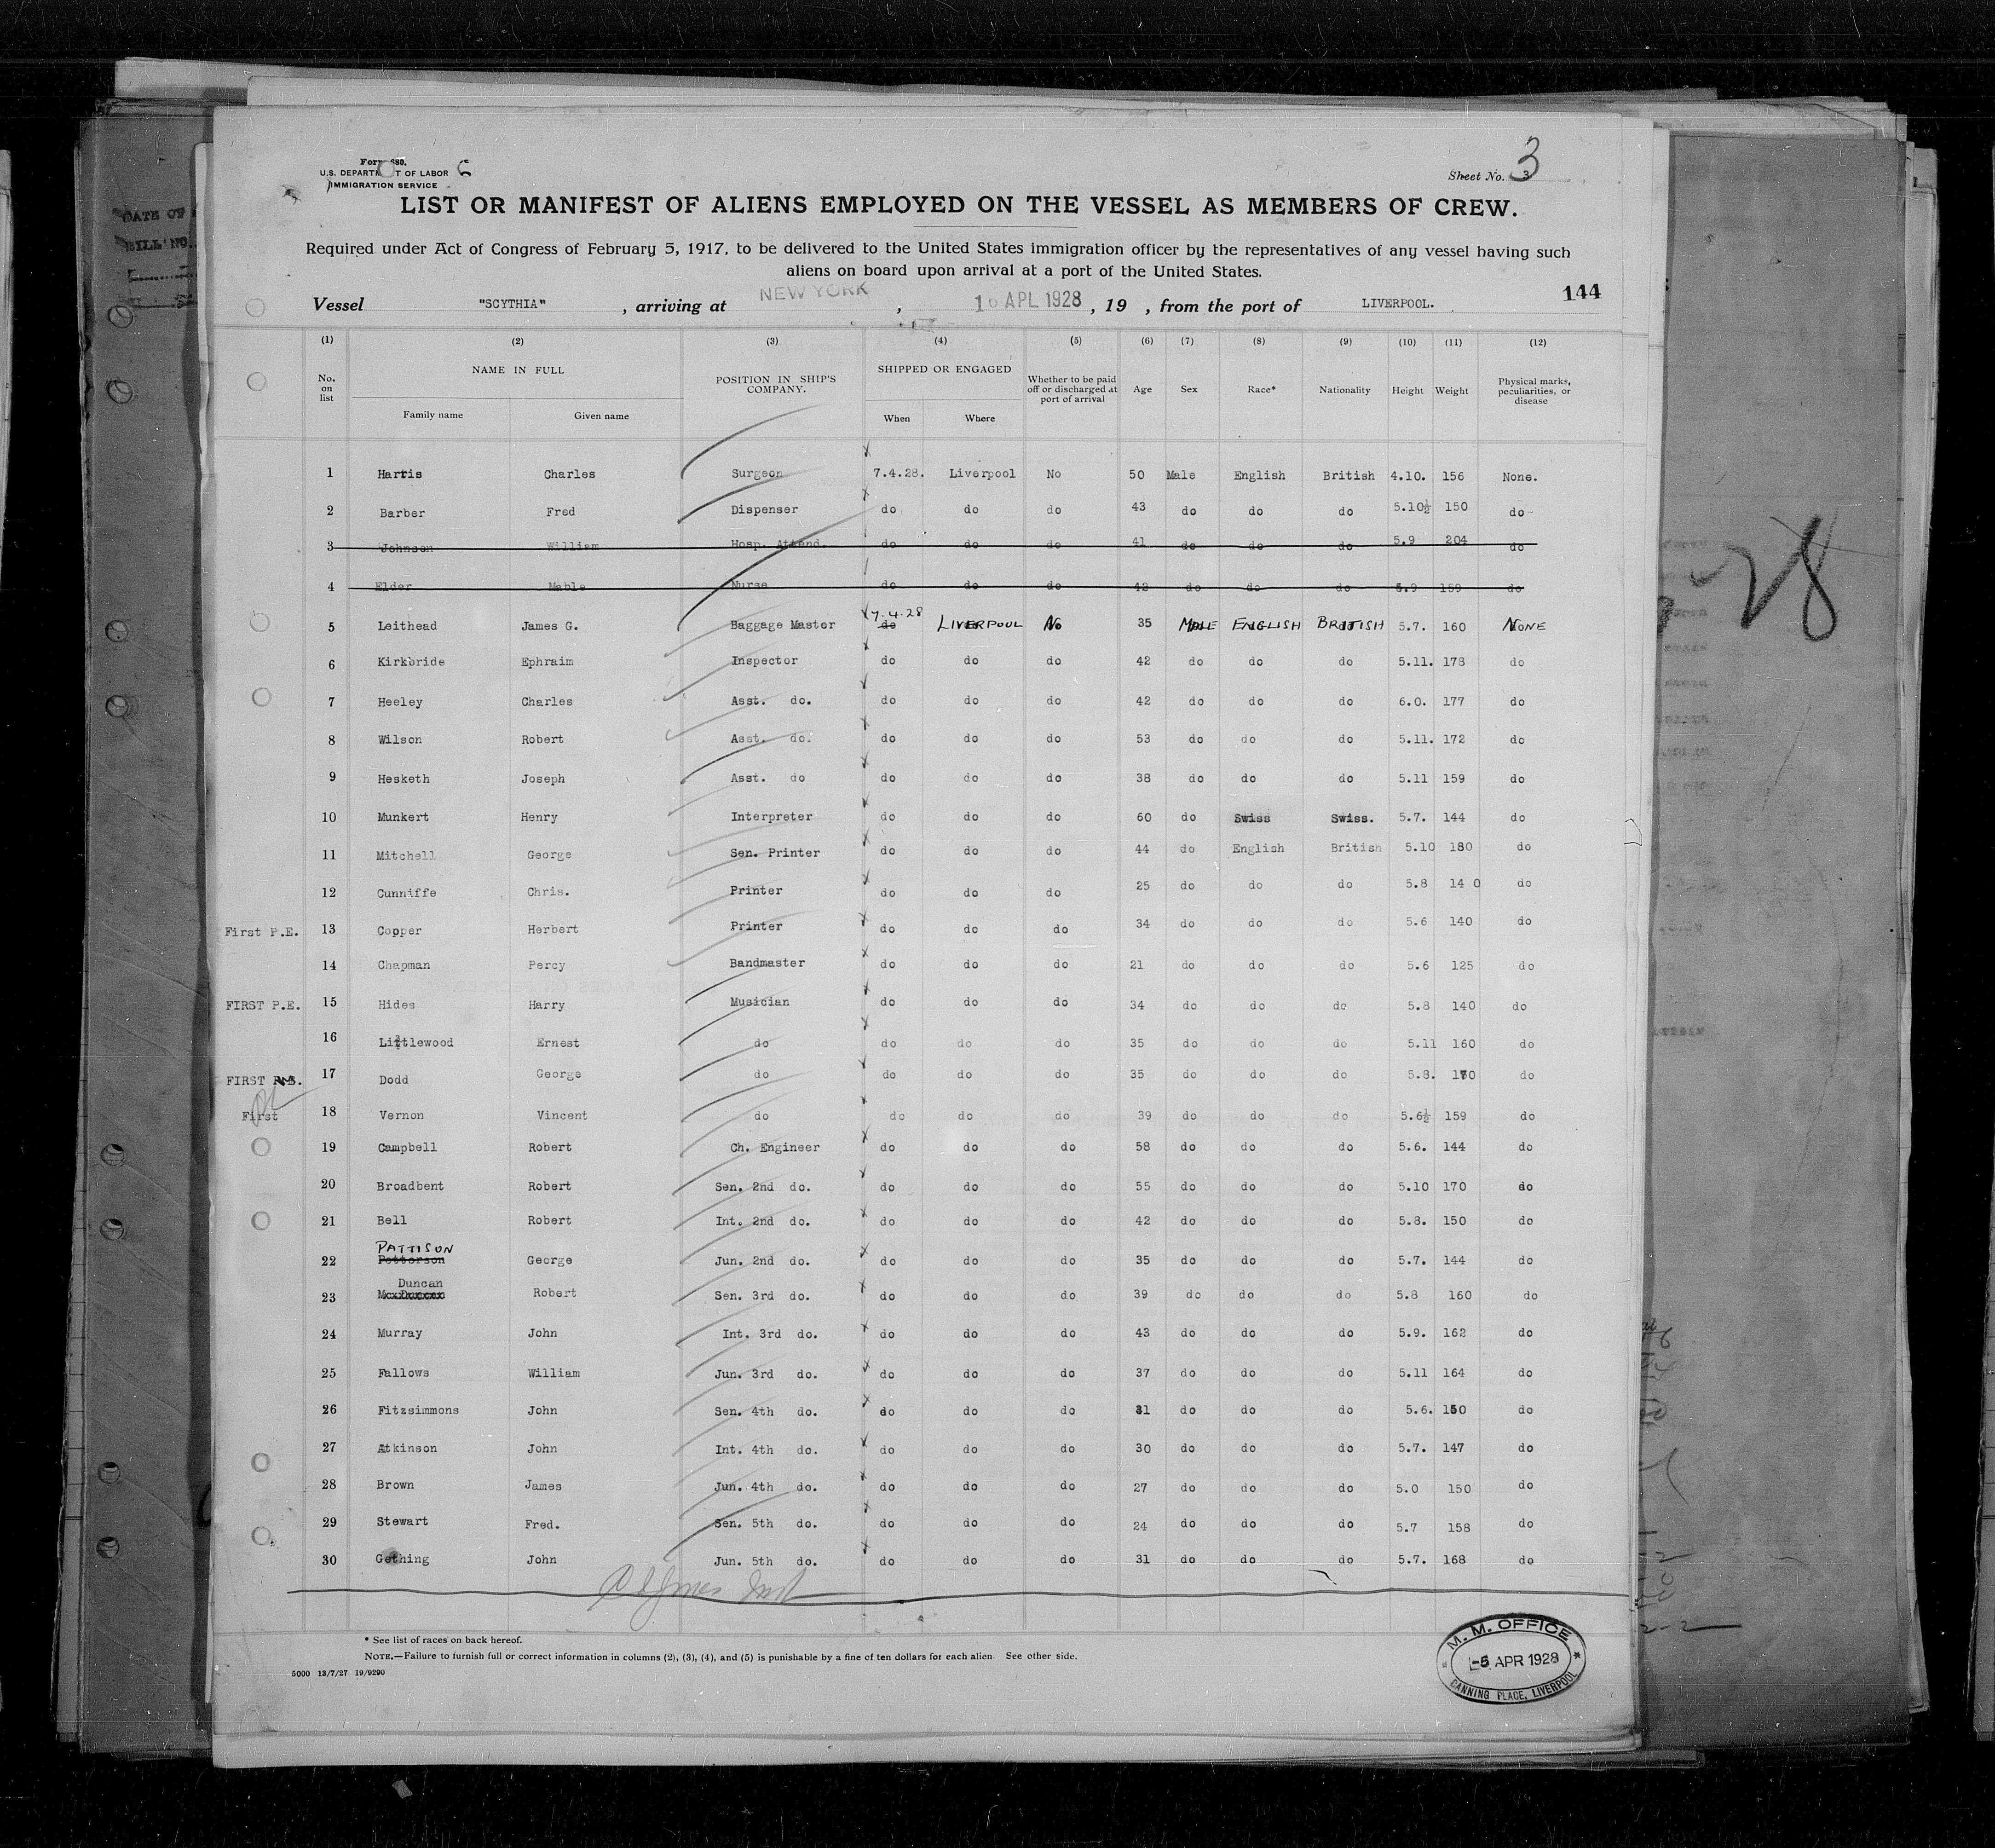 Form 680.
U.S. DEPARTMENT OF LABOR
IMMIGRATION SERVICE
Sheet No. 3
LIST OR MANIFEST OF ALIENS EMPLOYED ON THE VESSEL AS MEMBERS OF CREW.
Required under Act of Congress of February 5, 1917, to be delivered to the United States immigration officer by the representatives of any vessel having such
aliens on board upon arrival at a port of the United States.
144
Vessel "SCYTHIA" , arriving at NEW YORK , 16 APL 1928 , 19 , from the port of LIVERPOOL.
(1) (2) (3) (4) (5) (6) (7) (8) (9) (10) (11) (12)
No. on list NAME IN FULL POSITION IN SHIP'S COMPANY. SHIPPED OR ENGAGED Whether to be paid off or discharged at port of arrival Age Sex Race* Nationality Height Weight Physical marks, peculiarities, or disease
Family name Given name When Where
1 Harris Charles Surgeon 7.4.28. Liverpool No 50 Male English British 4.10. 156 None.
2 Barber Fred Dispenser do do do 43 do do do 5.10½ 150 do
3 Johnson William Hosp. Attend. do do do 41 do do do 5.9 204 do
4 Elder Mable Nurse do do do 42 do do do 5.9 159 do
5 Leithead James G. Baggage Master do 7.4.28 LIVERPOOL No 35 MALE ENGLISH BRITISH 5.7. 160 NONE
6 Kirkbride Ephraim Inspector do do do 42 do do do 5.11. 178 do
7 Heeley Charles Asst. do. do do do 42 do do do 6.0. 177 do
8 Wilson Robert Asst. do. do do do 53 do do do 5.11. 172 do
9 Hesketh Joseph Asst. do do do do 38 do do do 5.11 159 do
10 Munkert Henry Interpreter do do do 60 do Swiss Swiss. 5.7. 144 do
11 Mitchell George Sen. Printer do do do 44 do English British 5.10 180 do
12 Cunniffe Chris. Printer do do do 25 do do do 5.8 14 0 do
First P.E. 13 Copper Herbert Printer do do do 34 do do do 5.6 140 do
14 Chapman Percy Bandmaster do do do 21 do do do 5.6 125 do
FIRST P.E. 15 Hides Harry Musician do do do 34 do do do 5.8 140 do
16 Littlewood Ernest do do do do 35 do do do 5.11 160 do
FIRST 17 Dodd George do do do do 35 do do do 5.8. 170 do
First 18 Vernon Vincent do do do do 39 do do do 5.6½ 159 do
19 Campbell Robert Ch. Engineer do do do 58 do do do 5.6. 144 do
20 Broadbent Robert Sen. 2nd do. do do do 55 do do do 5.10 170 do
21 Bell Robert Int. 2nd do. do do do 42 do do do 5.8. 150 do
PATTISON
22 Patterson George Jun. 2nd do. do do do 35 do do do 5.7. 144 do
Duncan
23 Robert Sen. 3rd do. do do do 39 do do do 5.8 160 do
24 Murray John Int. 3rd do. do do do 43 do do do 5.9. 162 do
25 Fallows William Jun. 3rd do. do do do 37 do do do 5.11 164 do
26 Fitzsimmons John Sen. 4th do. do do do 31 do do do 5.6. 150 do
27 Atkinson John Int. 4th do. do do do 30 do do do 5.7. 147 do
28 Brown James Jun. 4th do. do do do 27 do do do 5.0 150 do
29 Stewart Fred. Sen. 5th do. do do do 24 do do do 5.7 158 do
30 Gething John Jun. 5th do. do do do 31 do do do 5.7. 168 do
* See list of races on back hereof.
NOTE.—Failure to furnish full or correct information in columns (2), (3), (4), and (5) is punishable by a fine of ten dollars for each alien See other side.
5000 13/7/27 19/9290
M. M. OFFICE
-5 APR 1928
CANNING PLACE, LIVERPOOL
DATE OF
BILL NO.
28